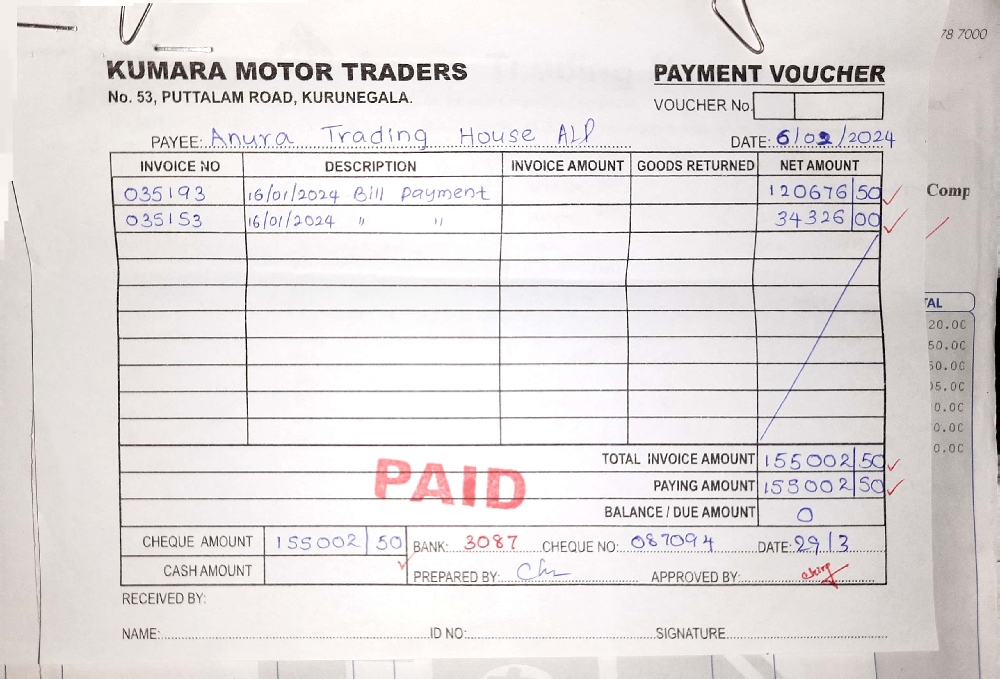 78 7000
KUMARA MOTOR TRADERS
No. 53, PUTTALAM ROAD, KURUNEGALA.
PAYMENT VOUCHER
VOUCHER No.
PAYEE: Anura Trading House ALP
DATE: 6/02/2024
INVOICE NO DESCRIPTION INVOICE AMOUNT GOODS RETURNED NET AMOUNT
035193 16/01/2024 Bill Payment 120676 50
035153 16/01/2024 " " 34326 00
Comp
TAL
20.00
50.00
50.00
05.00
0.00
0.00
0.00
TOTAL INVOICE AMOUNT 155002 50
PAID
PAYING AMOUNT 155002 50
BALANCE / DUE AMOUNT 0
CHEQUE AMOUNT 155002 50 BANK: 3087 CHEQUE NO: 087094 DATE: 29/3
CASH AMOUNT PREPARED BY: APPROVED BY:
RECEIVED BY:
NAME: ID NO: SIGNATURE